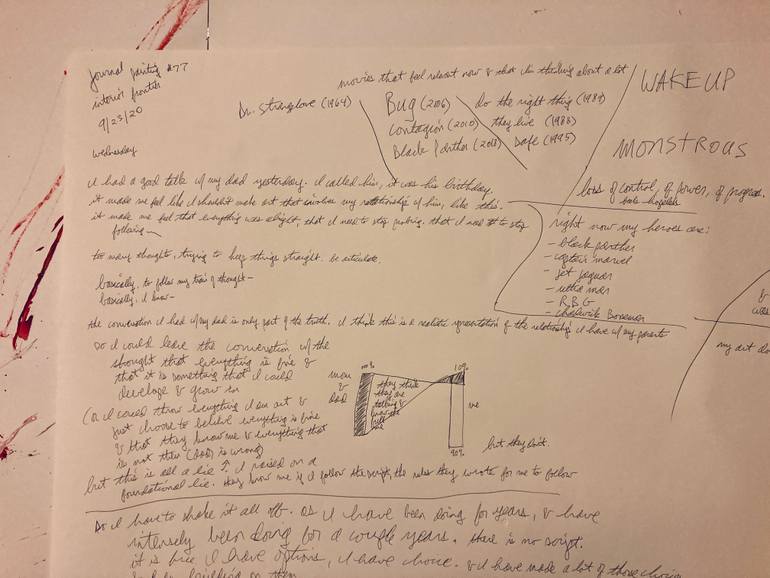 Journal painting #77
interior frontier
9/23/20
Wednesday
movies that feel relevant now & that I'm thinking about a lot
Dr. Strangelove (1964)
Bug (2006)
Contagion (2010)
Black Panther (2018)
do the right thing (1989)
they live (1988)
Safe (1995)
WAKE UP
MONSTROUS
loss of control, of power, of progress.
I had a good talk w/ my dad yesterday. I called him, it was his birthday.
it made me feel like I shouldn't make art that involves my relationship w/ him, like this.
it made me feel that everything was alright, that I need to stop probing. that I need to stop
too many thoughts, trying to keep things straight. be articulate.
basically, to follow my train of thought—
basically, I know—
right now my heroes are:
- black panther
- captain marvel
- jet jaguar
- ultra man
- R.B.G
- chadwick Boseman
the conversation I had w/ my dad is only part of the truth. I think this is a realistic representation of the relationship I have w/ my parents
So I could leave the conversation w/ the
thought that everything is fine &
that it is something that I could
develop & grow in
(or I could throw everything I am out &
just choose to believe everything is fine
& that they know me & everything that
is not them is wrong
but this is all a lie I raised on a
foundational lie. they know me if I follow the script, the rules they wrote for me to follow
mom
&
dad
100%
they think
they are
10%
me
90%
but they don't.
my art
So I have to shake it all off. as I have been doing for years, & have
intensely been doing for a couple years. there is no script.
it is fine I have options, I have choice. & I have made a lot of those choices